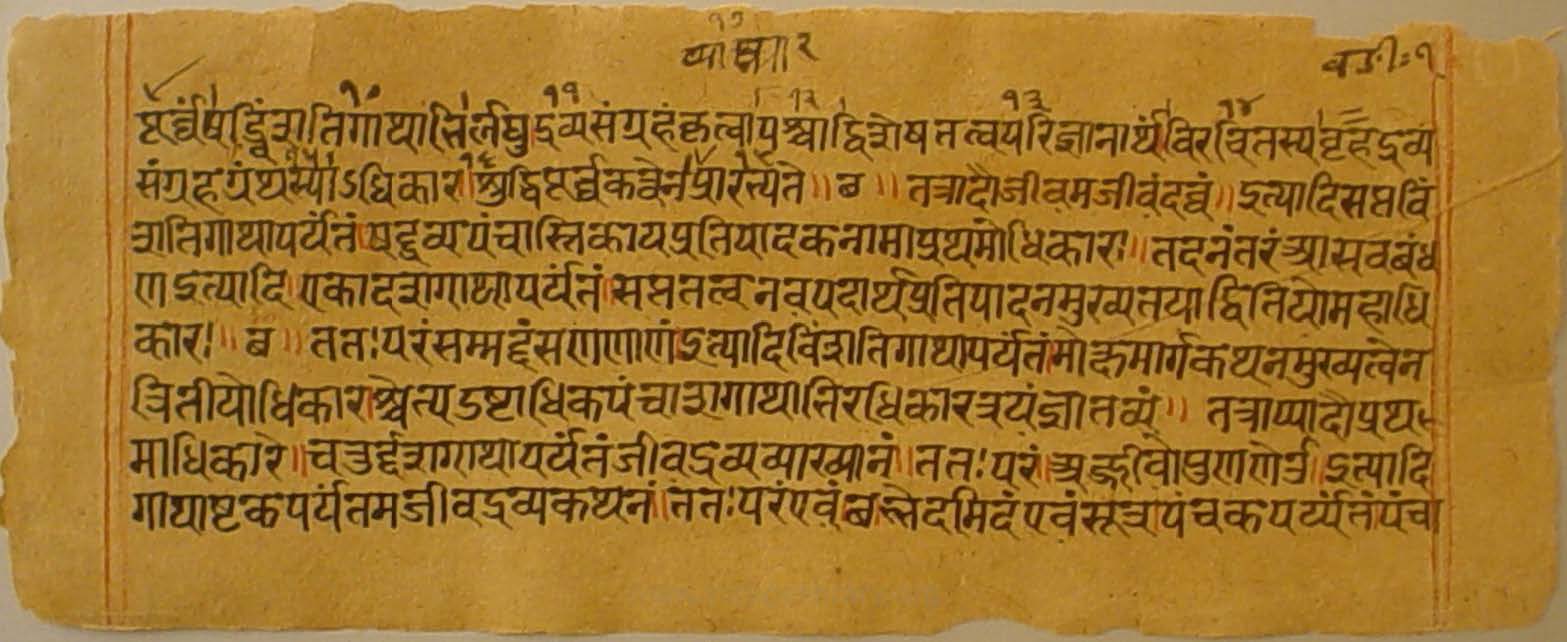 १०
व्या ख्या २
१० ११ १२ १३ १४
र्व्वंषड्विंशतिगाथाभिर्लघुद्रव्यसंग्रहंकृत्वापश्चाद्विशेषतत्वपरिज्ञानार्थंविरचितस्यबृहद्द्रव्य
संग्रहग्रंथस्याऽधिकारशुद्धिपूर्व्वकत्वेन ॥ ब ॥ तत्रादौजीवमजीवंदव्वं॥ इत्यादिसप्तविं
शतिगाथापर्यंतंषट्द्रव्यपंचास्तिकायप्रतिपादकनामाप्रथमोधिकारः॥ तदनंतरंआसवबंध
ण इत्यादि एकादशगाथापर्यंतंसप्ततत्वनवपदार्थप्रतिपादनमुख्यतयाद्वितियोमहाधि
कारः॥ ब ॥ ततःपरंसम्मद्दंसणणाणंइत्यादिविंशतिगाथापर्यंतंमोक्षमार्गकथनमुख्यत्वेन
त्रितीयोधिकारश्चेत्यऽष्टाधिकपंचाशगाथाभिरधिकारत्रयंज्ञातव्यं॥ तत्राप्यादौप्रथ
माधिकारे॥चतुर्द्दशगाथापर्यंतंजीवद्रव्यव्याख्यानं॥ततःपरंअज्जीवोपुणणेउ॥इत्यादि
गाथाष्टकपर्यंतमजीवद्रव्यकथनं ततःपरंएवंछब्भेदमिदंएवंसूत्रपंचकपर्य्यंतंपंचा